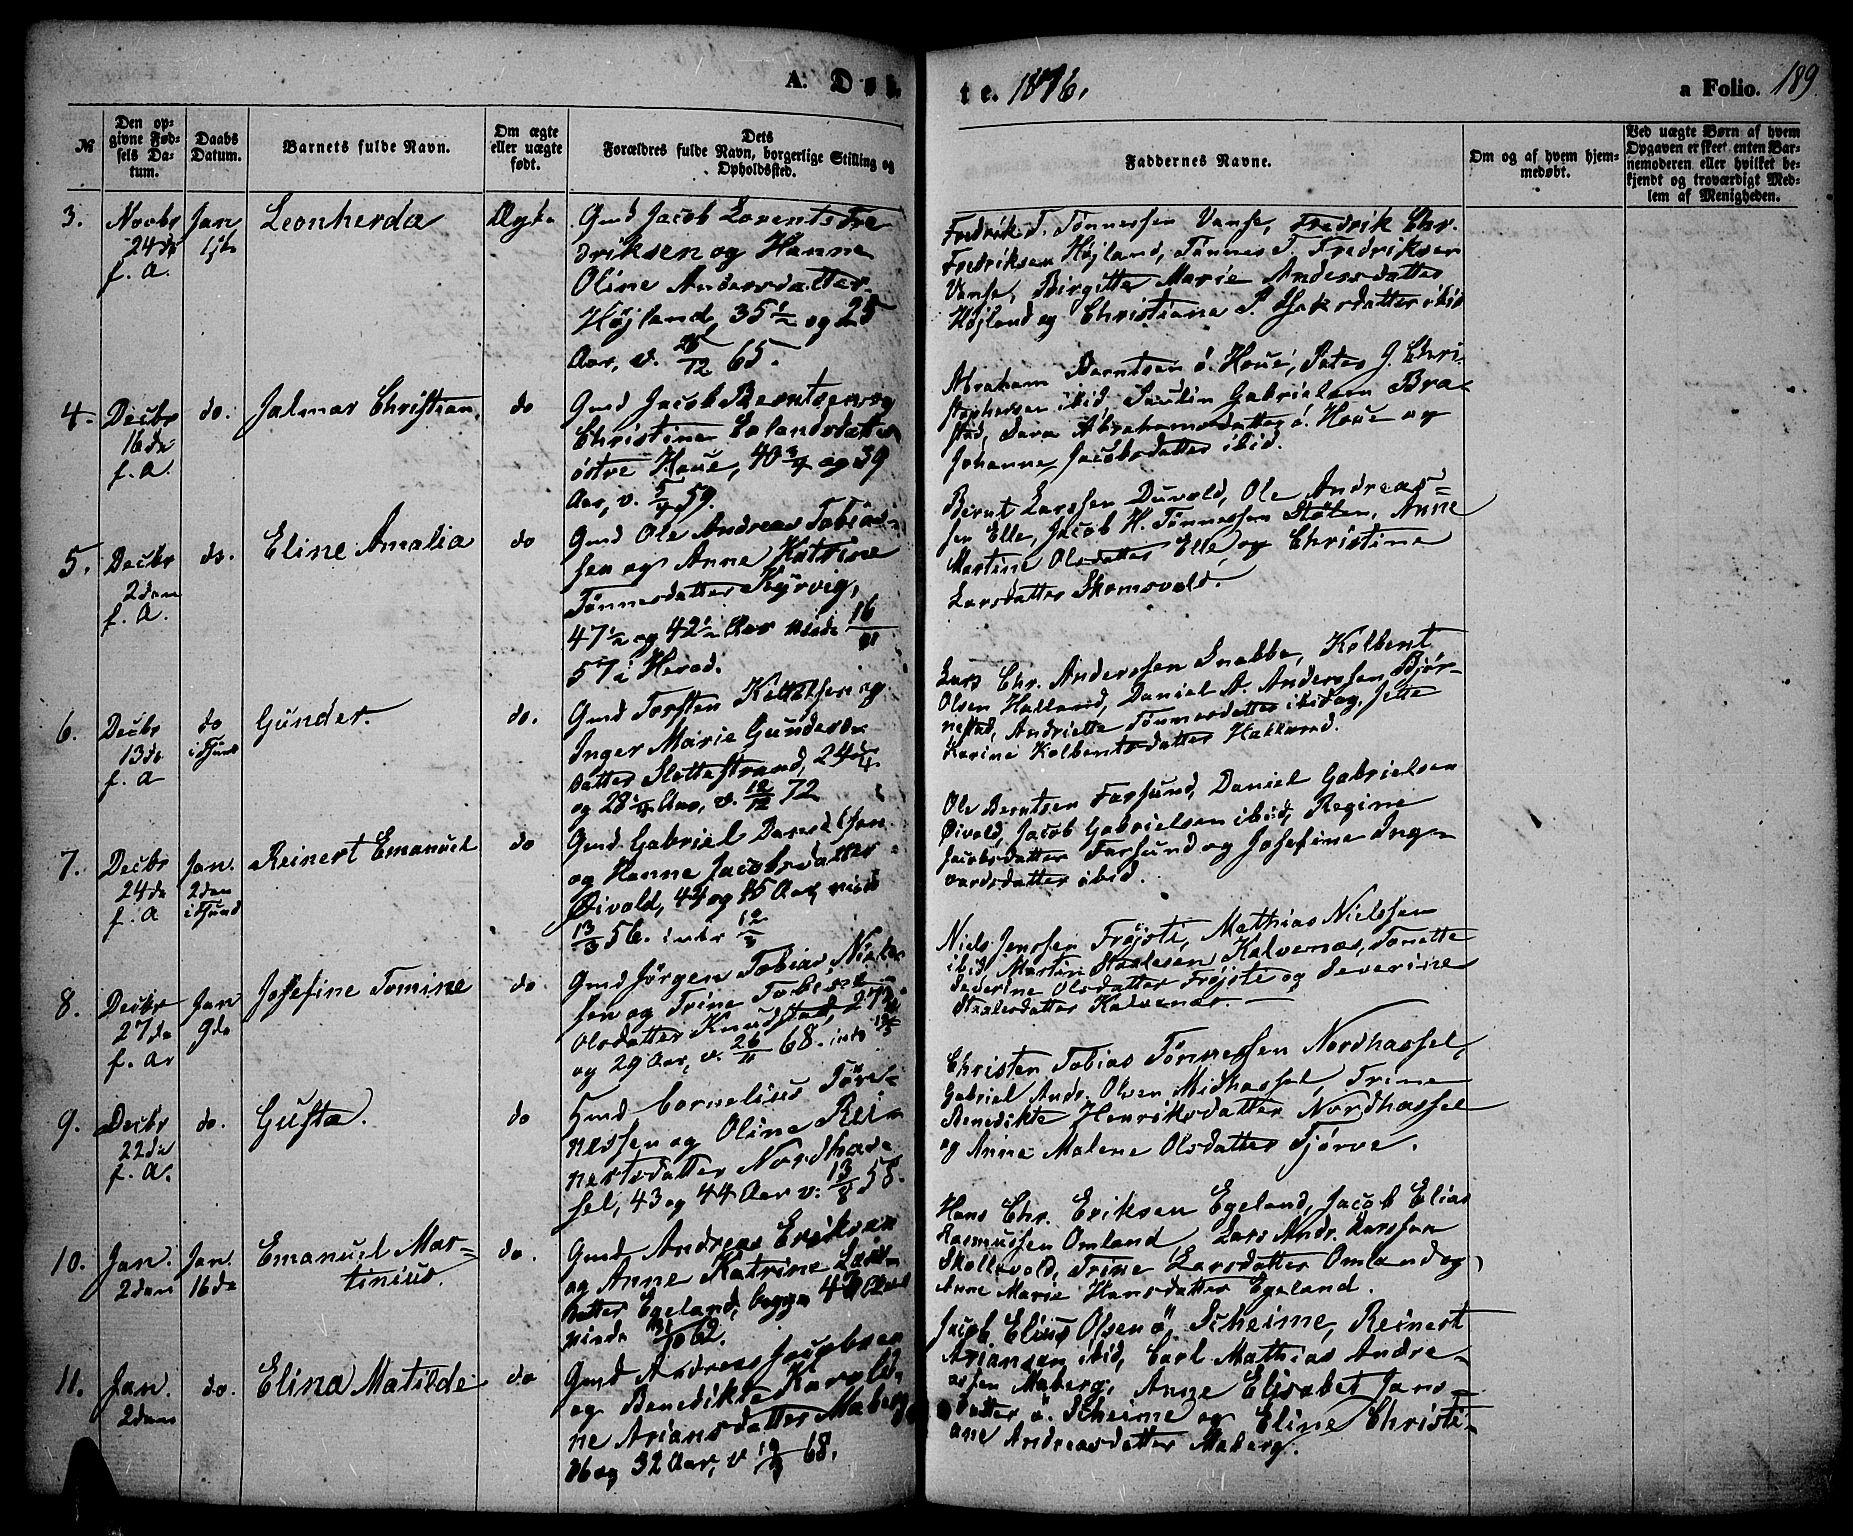 A. Døb
te. 1876.
a Folio. 189
№
Den op-
givne Fød-
sels Da-
tum.
Daabs
Datum.
Barnets fulde Navn.
Om ægte
eller uægte
født.
Dets
Forældres fulde Navn, borgerlige Stilling og
Opholdssted.
Faddernes Navne.
Om og af hvem hjem-
medøbt.
Ved uægte Børn af hvem
Opgaven er skeet enten Bar-
nemoderen eller hvilket be-
kjendt og troværdigt Med-
lem af Menigheden.
3.
Novbr
24de
f. A.
Jan
1ste
Leonherda
Ægte
Gmd Jacob Lorents Fre
driksen og Hanne
Oline Andersdatter
Højland, 35 1/2 og 25
Aar, v. 28/12 65.
Fredrik T. Tönnessen Vanse, Fredrik Chr.
Fredriksen Højland, Tönnes T. Fredriksen
Vanse, Birgitte Marie Andersdatter
Højland og Christiane P. Isaksdatter ibid
4.
Decbr
16de
f. A.
do.
Jalmar Christian.
do
Gmd Jacob Berntsen og
Christine Erlandsdatter
østre Houe, 40 3/4 og 39
Aar, v. 59.
Abraham Berntsen ö. Houe, Peter G. Chri-
stophersen ibid, Paulin Gabrielsen Bra-
stad, Sara Abrahamsdatter ö. Houe og
Johanne Jacobsdatter ibid.
5.
Decbr
2den
f. A.
do.
Eline Amalia
do
Gmd Ole Andreas Tobias-
sen og Anne Katrine
Tönnesdatter Kjörvig,
47 1/2 og 42 1/2 Aar viede 16
57 i Herad.
Bernt Larssen Duvold, Ole Andreas-
sen Elle, Jacob H. Tönnessen Stölen, Anne
Martine Olsdatter Elle og Christine
Larsdatter Skomsvold.
6.
Decbr
13de
f. A
do
i Fsund
Gunder.
do.
Gmd Torsten Kettelsen og
Inger Marie Gunders-
datter Slottestrand, 24 1/4
og 28 1/4 Aar, v. 12/12 72
Lars Chr. Anderssen Snabbe, Kolbent
Olsen Halland, Daniel A. Anderssen Björ-
nestad, Andriette Tönnesdatter ibid og Jette
Karine Kolbentsdatter Halland.
7.
Decbr
24de
f. A
Jan.
2den
i Fsund
Reinert Emanuel
do
Gmd Gabriel Danielsen
og Hanne Jacobsdatter
Øivold, 44 og 45 Aar, viede
13/3 56.
Ole Berntsen Farsund, Daniel Gabrielsen
Øivold, Jacob Gabrielsen ibid, Regine
Jacobsdatter Farsund og Josefine Ing-
vardsdatter ibid.
8.
Decbr
27de
f. A.
Jan
9de
Josefine Tomine
do
Gmd Jörgen Tobias Niel-
sen og Trine Tobine
Olsdatter Knudstad, 27
og 29 Aar, v. 26/11 68.
Niels Jenssen Fröjsti, Mathias Nielssen
ibid, Martin Staalesen Kalvenæs, Tonette
Severine Olsdatter Fröjsti og Severine
Staalesdatter Kalvenæs.
9.
Decbr
22de
f. A.
do.
Gusta.
do
Hmd Cornelius Tön-
nessen og Oline Rei-
nertsdatter Nordhas-
sel, 43 og 44 Aar v. 13/8 58.
Christen Tobias Tönnessen Nordhassel,
Gabriel Andr. Olsen Midhassel, Trine
Benedikte Henriksdatter Nordhassel
og Anne Malene Olsdatter Tjörve.
10.
Jan.
2den
Jan.
16de
Emanuel Mar-
tinius.
do.
Gmd Andreas Eriksen
og Anne Katrine Lars-
datter Egeland, begge 40 Aar
viede 62.
Hans Chr. Eriksen Egeland, Jacob Elias
Rasmussen Omland Lars Andr. Larssen
Skollevold, Trine Larsdatter Omland og
Anne Marie Hansdatter Egeland.
11.
Jan.
2den
do.
Elina Matilde
do
Gmd Andreas Jacobsen
og Benedikte Karoli-
ne Ariansdatter Maberg
36 og 32 Aar, v. 68.
Jacob Elius Olsen ö. Skeime, Reinert
Ariansen ibid, Carl Mathias Andre-
assen Maberg, Anne Elisabet Jans-
datter ö. Skeime og Eline Christi-
ane Andreasdatter Maberg.